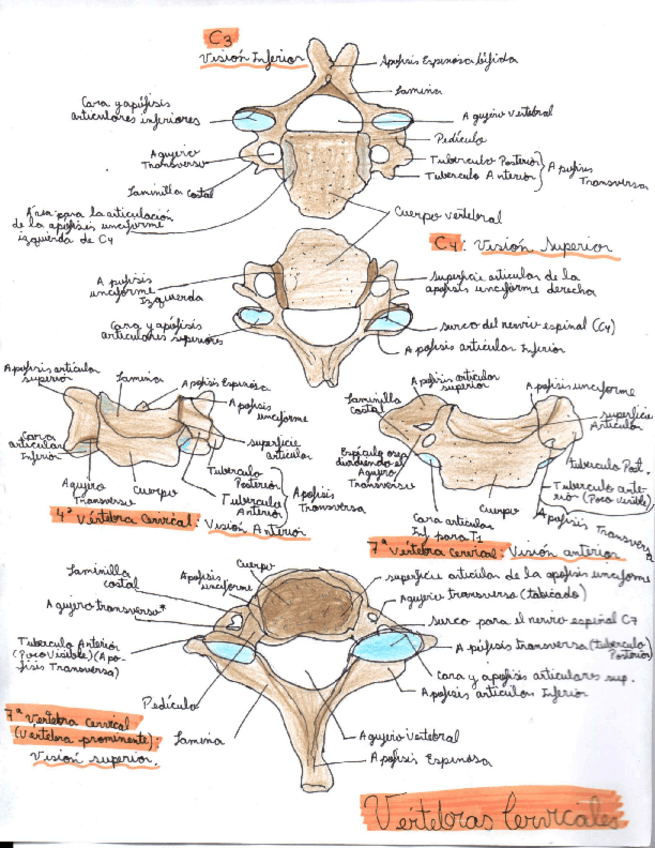 C3
Visión Inferior
Apofisis Espinosa bífida
Lamina
Cara y apófisis
articulares inferiores
Agujero Vertebral
Pedículo
Agujero
Transverso
Tuberculo Posterior
Tuberculo Anterior
Apofisis
Transversa
Laminilla Costal
Área para la articulación
de la apofisis unciforme
izquierda de C4
Cuerpo vertebral
C4: Visión Superior
Apofisis
unciforme
Izquierda
superficie articular de la
apofisis unciforme derecha
Cara y apófisis
articulares superiores
surco del nervio espinal (C4)
Apofisis articular Inferior
Apofisis articular
superior
Lamina
Apofisis Espinosa
Apofisis
unciforme
Cara
articular
Inferior
superficie
articular
Agujero
Transverso
Cuerpo
Tuberculo
Posterior
Tuberculo
Anterior
Apofisis
Transversa
4ª Vértebra Cervical: Visión Anterior
Laminilla
costal
Apofisis articular
superior
Apofisis unciforme
superficie
Articular
Espiculo osea
dividiendo el
Agujero
Transverso
Tuberculo Post.
Tuberculo ante-
rior (Poco visible)
Apofisis Transversa
Cara articular
Inf para T1
Cuerpo
7ª Vértebra Cervical: Visión anterior
Laminilla
costal
Apofisis
unciforme
Cuerpo
superficie articular de la apofisis unciforme
Agujero transverso*
Agujero transverso (tabicado)
surco para el nervio espinal C7
Tuberculo Anterior
(Poco Visible) (Apo-
fisis Transversa)
Apófisis transversa (tuberculo
Posterior)
Cara y apofisis articulares sup.
Apofisis articular Inferior
Pedículo
Lamina
Agujero Vertebral
Apofisis Espinosa
7ª Vertebra Cervical
(Vértebra prominente):
Visión superior.
Vértebras Cervicales